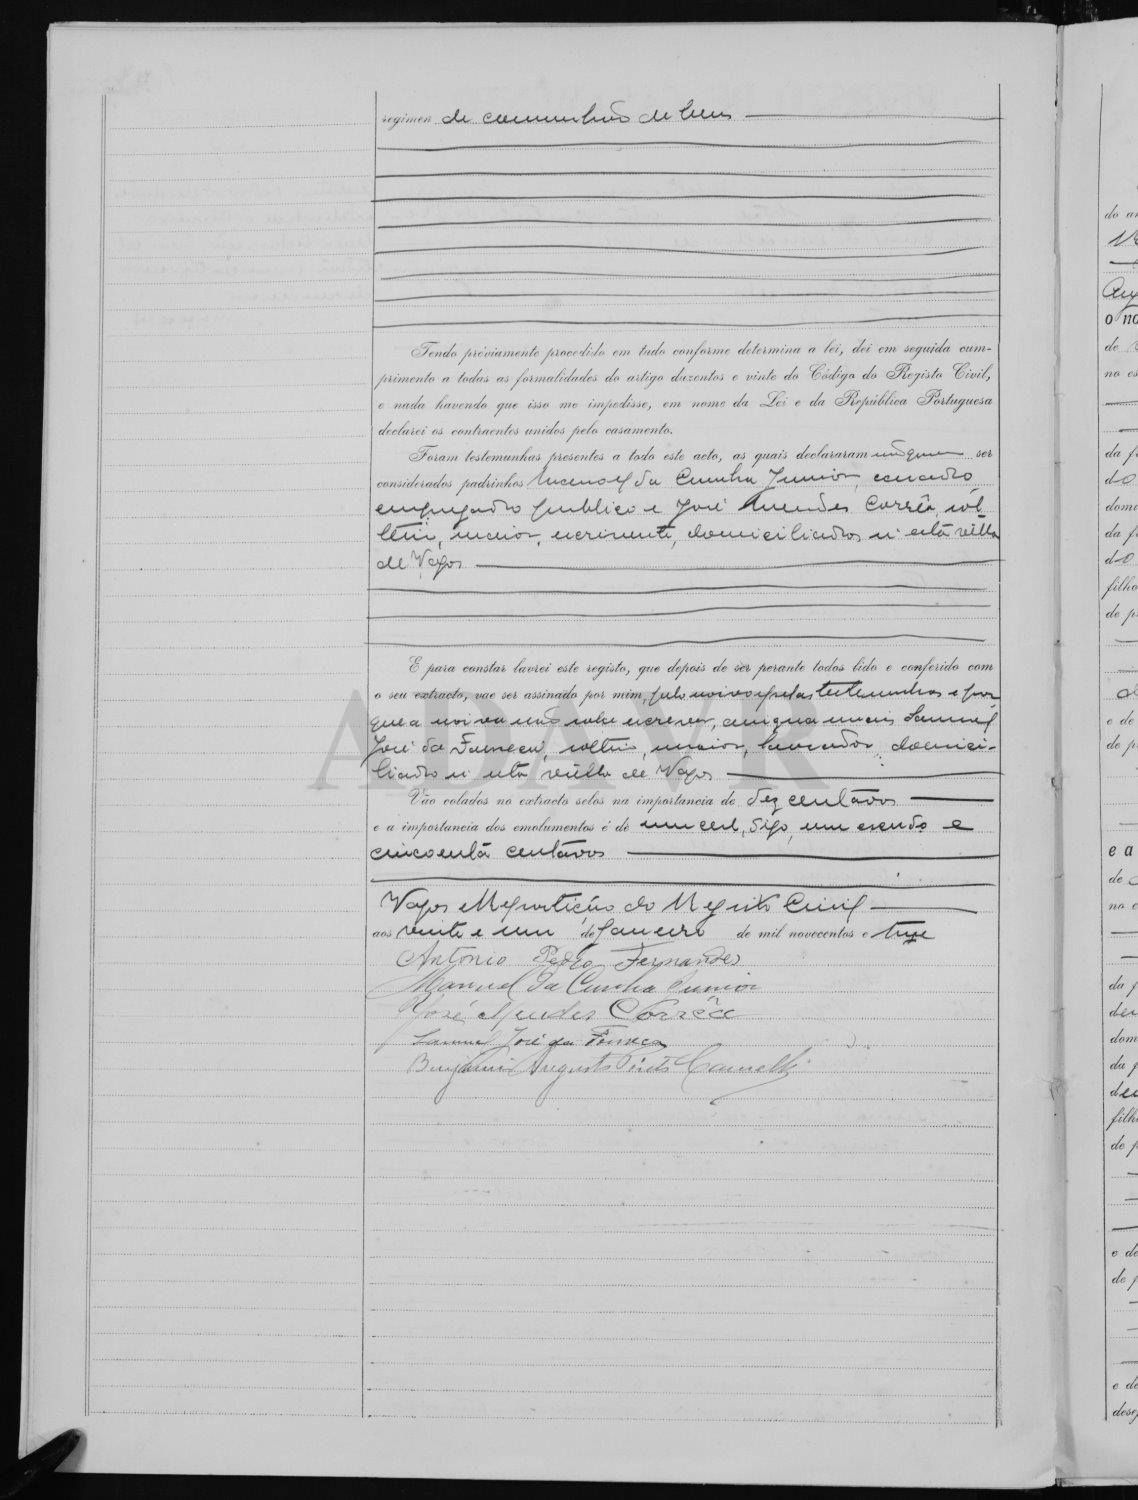 regimen de comunhão de bens
Tendo préviamente procedido em tudo conforme determina a lei, dei em seguida cum-
primento a todas as formalidades do artigo duzentos e vinte do Código do Registo Civil,
e nada havendo que isso me impedisse, em nome da Lei e da República Portuguesa
declarei os contraentes unidos pelo casamento.
Foram testemunhas presentes a todo este acto, as quais declararam não querer ser
considerados padrinhos Manoel da Cunha Junior, casado
empregado publico e José Mendes Corrêa, sol-
teiro, maior, escrevente, domiciliados n'esta villa
de Vagos
E para constar lavrei este registo, que depois de ser perante todos lido e conferido com
o seu extracto, vae ser assinado por mim, pelo noivo e pelas testemunhas e por
que a noiva não sabe escrever, assigna mais Samuel
José da Fonseca, solteiro, maior, lavrador, domici-
liado n'esta villa de Vagos
Vão colados no extracto selos na importancia de dez centavos
e a importancia dos emolumentos é de um cent, digo, um escudo e
cincoenta centavos
Vagos e Repartição do Registo Civil
aos vinte e um de Janeiro de mil novecentos e treze
António Pedro Fernandes
Manuel da Cunha Junior
José Mendes Corrêa
Samuel José da Fonseca
Benjamin Augusto
ADAVR
do a
o no
de
no es
da f
do
dom
da f
do
filho
de p
e de
de p
e a
de
no e
da p
dom
da p
filh
de p
e de
de p
e de
dese